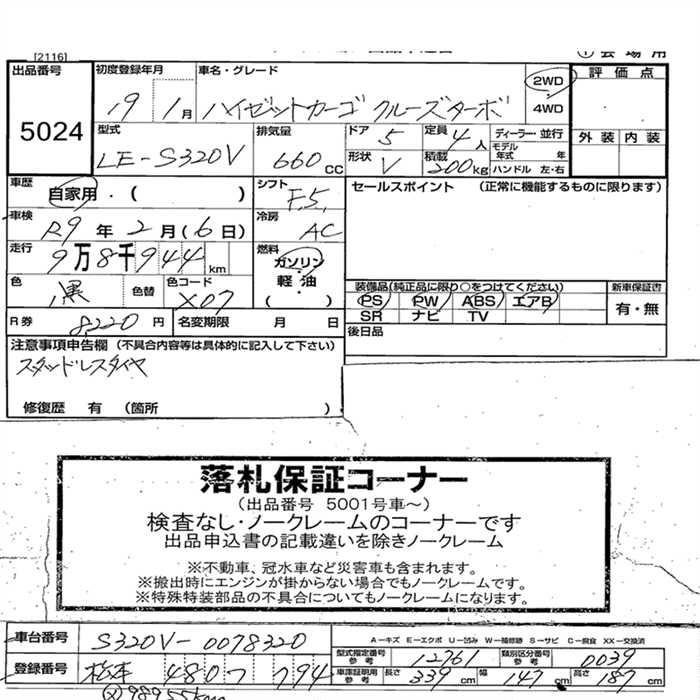 [2116]
① 会場用
出品番号 5024
初度登録年月 19年 1月
車名・グレード ハイゼットカーゴ クルーズターボ
2WD
4WD
評価点
外装 内装
型式 LE-S320V
排気量 660 CC
ドア 5
定員 4人
形状 V
積載 200kg
ディーラー・並行
モデル年式 年
ハンドル 左・右
車歴 自家用・( )
シフト F.5.
セールスポイント (正常に機能するものに限ります)
車検 R9年 2月(6日)
冷房 AC
走行 9万8千944km
燃料 ガソリン・軽油・( )
色 黒 色替 色コード X07
装備品(純正品に限り○をつけてください)
PS PW ABS エアB
SR ナビ TV
新車保証書 有・無
R券 8220円 名変期限 月 日
後日品
注意事項申告欄 (不具合内容等は具体的に記入して下さい)
スタッドレスタイヤ
修復歴 有 (箇所 )
落札保証コーナー
(出品番号 5001号車〜)
検査なし・ノークレームのコーナーです
出品申込書の記載違いを除きノークレーム
※不動車、冠水車など災害車も含まれます。
※搬出時にエンジンが掛からない場合でもノークレームです。
※特殊特装部品の不具合についてもノークレームになります。
車台番号 S320V-0078320
A－キズ E－エクボ U－凹み W－補修跡 S－サビ C－腐食 XX－交換済
型式指定番号 参考 12761 類別区分番号 参考 0039
登録番号 松本 480 794
車庫証明用 参考 長さ 339cm 幅 147cm 高さ 187cm